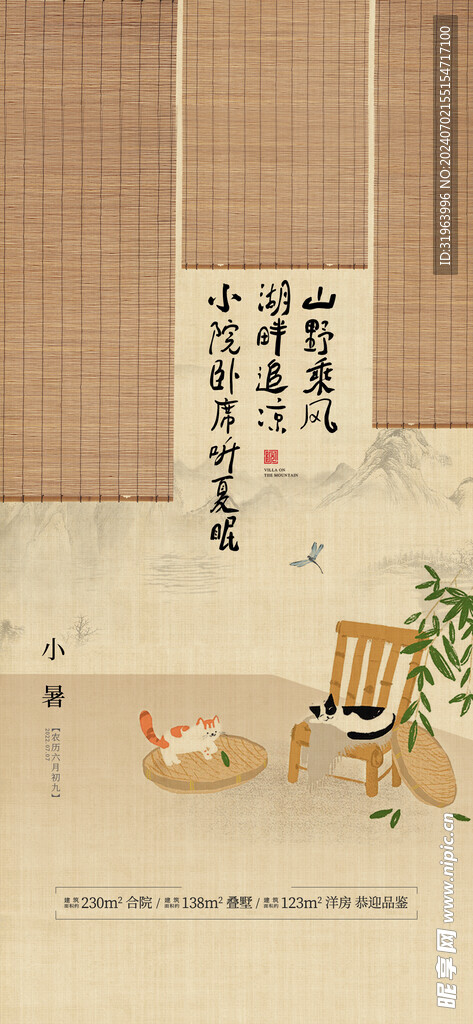 山野乘风
湖畔追凉
小院卧席听夏眠
VILLA ON
THE MOUNTAIN
小暑
【农历六月初九】
2022.07.07
建筑面积约 230m² 合院 / 建筑面积约 138m² 叠墅 / 建筑面积约 123m² 洋房 恭迎品鉴
ID:31963996 NO:20240702155154717100
昵享网 www.nipic.cn